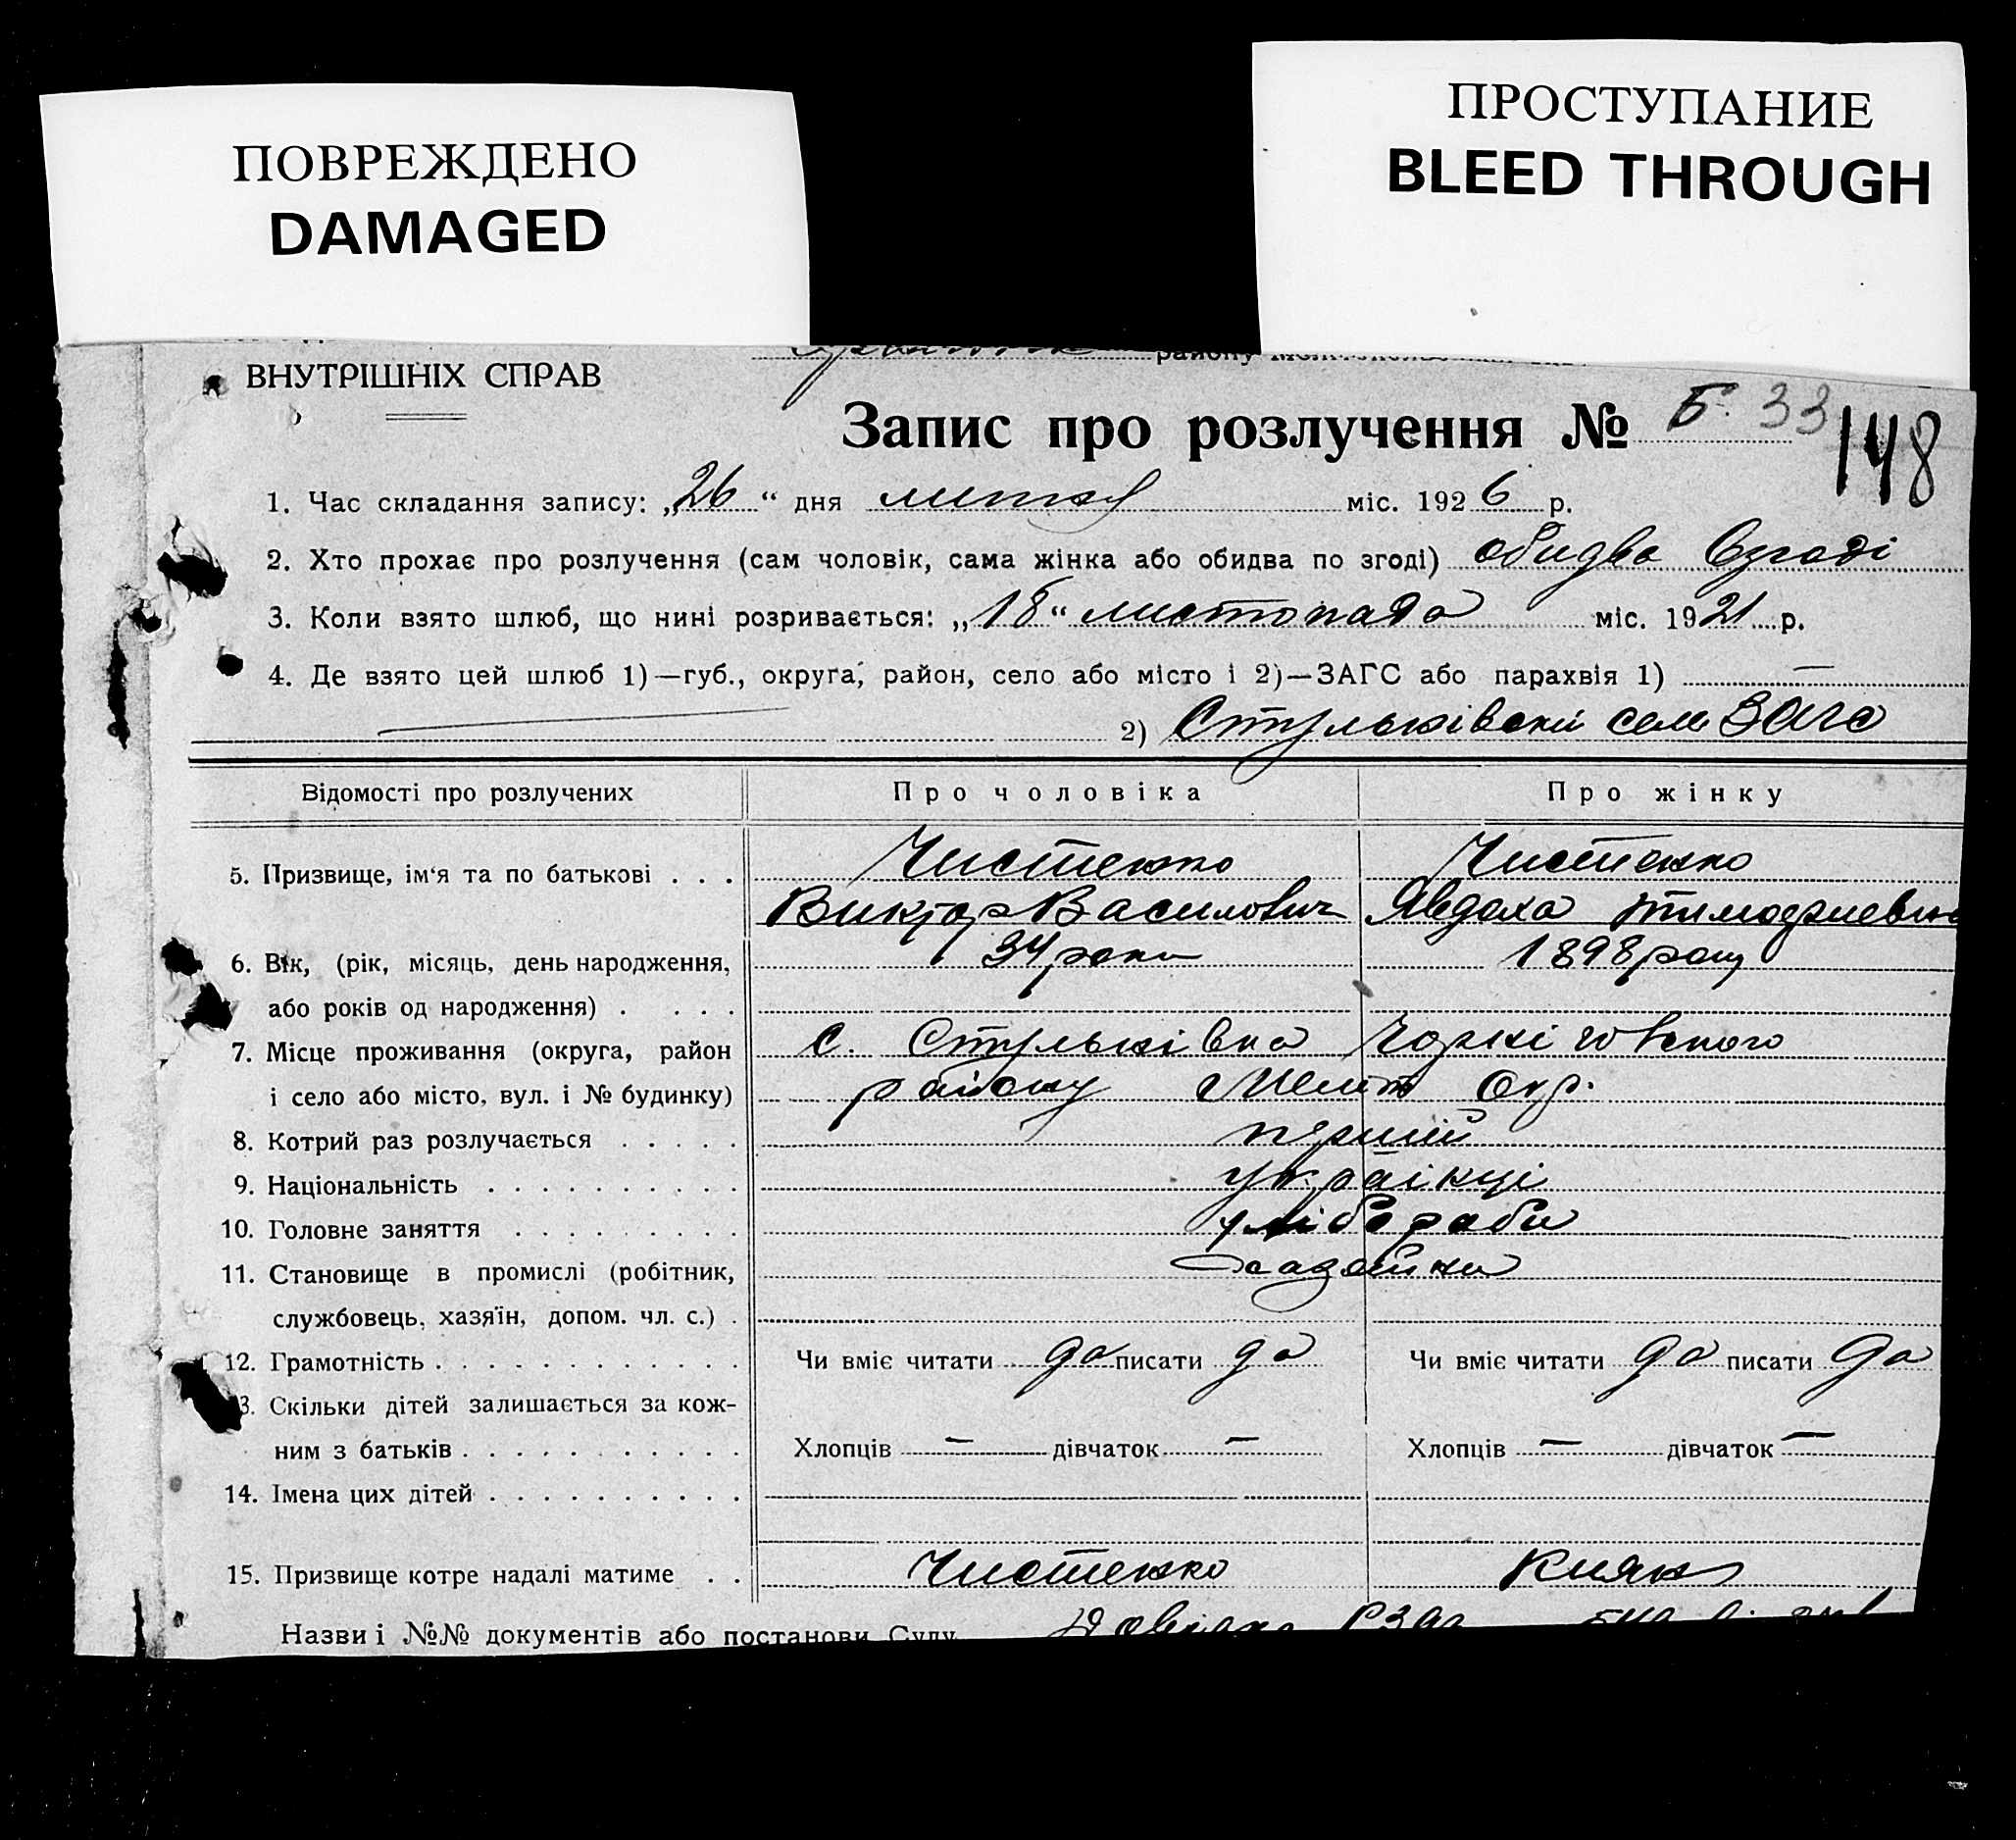 ПОВРЕЖДЕНО
DAMAGED
ПРОСТУПАНИЕ
BLEED THROUGH
району
ВНУТРІШНІХ СПРАВ
Запис про розлучення № Б. 33
148
1. Час складання запису: „26“ дня міс. 1926 р.
2. Хто прохає про розлучення (сам чоловік, сама жінка або обидва по згоді) обидва
3. Коли взято шлюб, що нині розривається: „18“ листопада міс. 1921 р.
4. Де взято цей шлюб 1)—губ., округа, район, село або місто і 2)—ЗАГС або парахвія 1) —
2) ЗАГС
Відомості про розлучених Про чоловіка Про жінку
5. Призвище, ім‘я та по батькові . . . Чистенко Чистенко
Виктор Василович Явдоха
6. Вік, (рік, місяць, день народження, 34 роки 1898 року
або років од народження) . . . .
7. Місце проживання (округа, район с.
і село або місто, вул. і № будинку) району Меліт Окр.
8. Котрий раз розлучається . . . . . перший
9. Національність . . . . . . . . . . українці
10. Головне заняття . . . . . . . . . хлібороби
11. Становище в промислі (робітник,
службовець, хазяїн, допом. чл. с.) .
12. Грамотність . . . . . . . . . . . . Чи вміє читати да писати да Чи вміє читати да писати да
3. Скільки дітей залишається за кож-
ним з батьків . . . . . . . . . . . Хлопців — дівчаток — Хлопців — дівчаток —
14. Імена цих дітей . . . . . . . . . .
15. Призвище котре надалі матиме . . Чистенко Кияк
Назви і №№ документів або постанови Суду